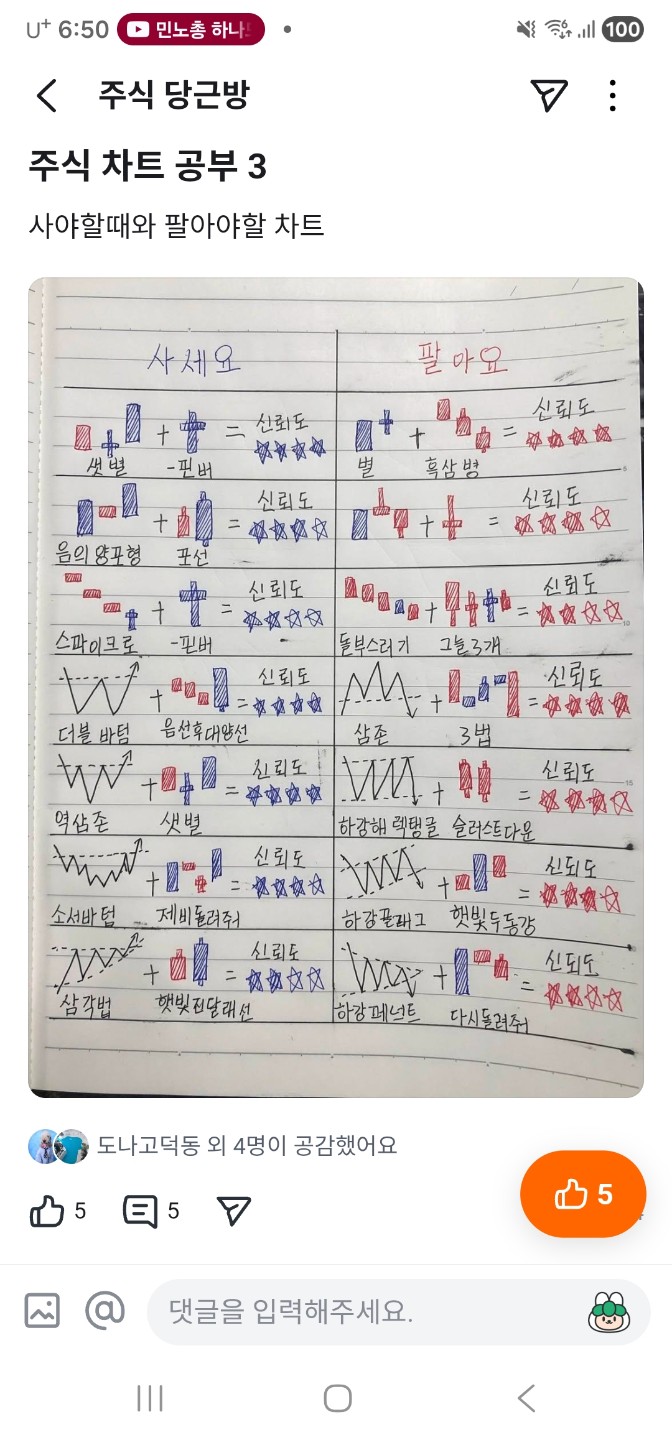 U+ 6:50 민노총 하나 100
주식 당근방
주식 차트 공부 3
사야할때와 팔아야할 차트
사세요 팔아요
+ = 신뢰도 + = 신뢰도
샛별 -핀버 별 흑삼병
+ = 신뢰도 + = 신뢰도
음의 양포형 포선
+ = 신뢰도 + = 신뢰도
스파이크로 -핀버 돌부스러기 그늘3개
+ = 신뢰도 + = 신뢰도
더블 바텀 음선후대양선 삼존 3법
+ = 신뢰도 + = 신뢰도
역삼존 샛별 하강해 렉탱글 슬러스트다운
+ = 신뢰도 + = 신뢰도
소서바텀 제비돌려줘 하강플래그 햇빛두동강
+ = 신뢰도 + = 신뢰도
삼각법 햇빛진달래선 하강페넌트 다시돌려줘
도나고덕동 외 4명이 공감했어요
5 5 5
댓글을 입력해주세요.